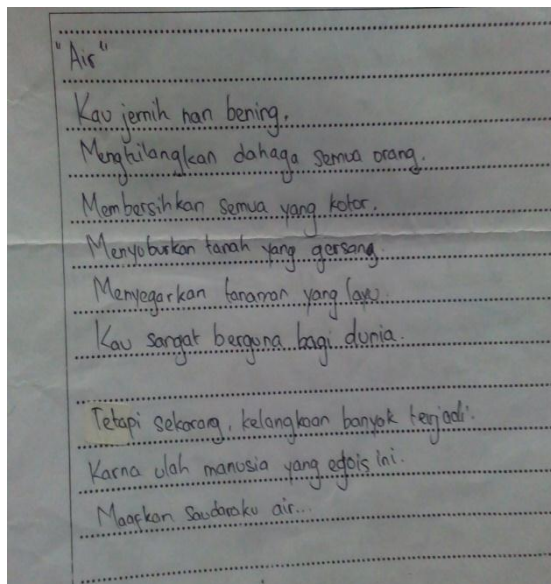 "Air"
Kau jernih nan bening.
Menghilangkan dahaga semua orang.
Membersihkan semua yang kotor.
Menyuburkan tanah yang gersang.
Menyegarkan tanaman yang layu.
Kau sangat berguna bagi dunia.
Tetapi sekarang, kelangkaan banyak terjadi.
Karna ulah manusia yang egois ini.
Maafkan saudaraku air...